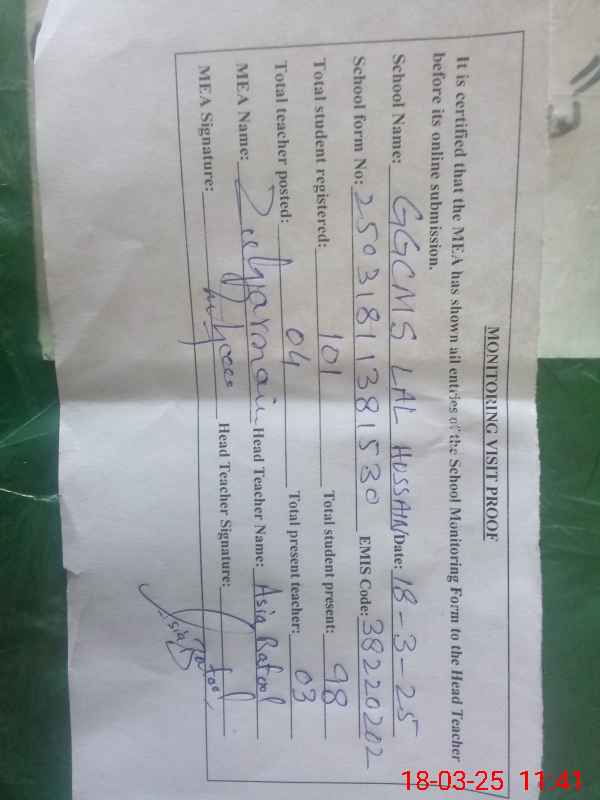 MONITORING VISIT PROOF
It is certified that the MEA has shown all entries of the School Monitoring Form to the Head Teacher
before its online submission.
School Name: GGCMS LAL HUSSAIN Date: 18-3-25
School form No: 25031811381530 EMIS Code: 38220202
Total student registered: 101 Total student present: 98
Total teacher posted: 04 Total present teacher: 03
MEA Name: Zulqarnain Head Teacher Name: Asia Batool
MEA Signature: Head Teacher Signature: Asia Batool
18-03-25 11:41